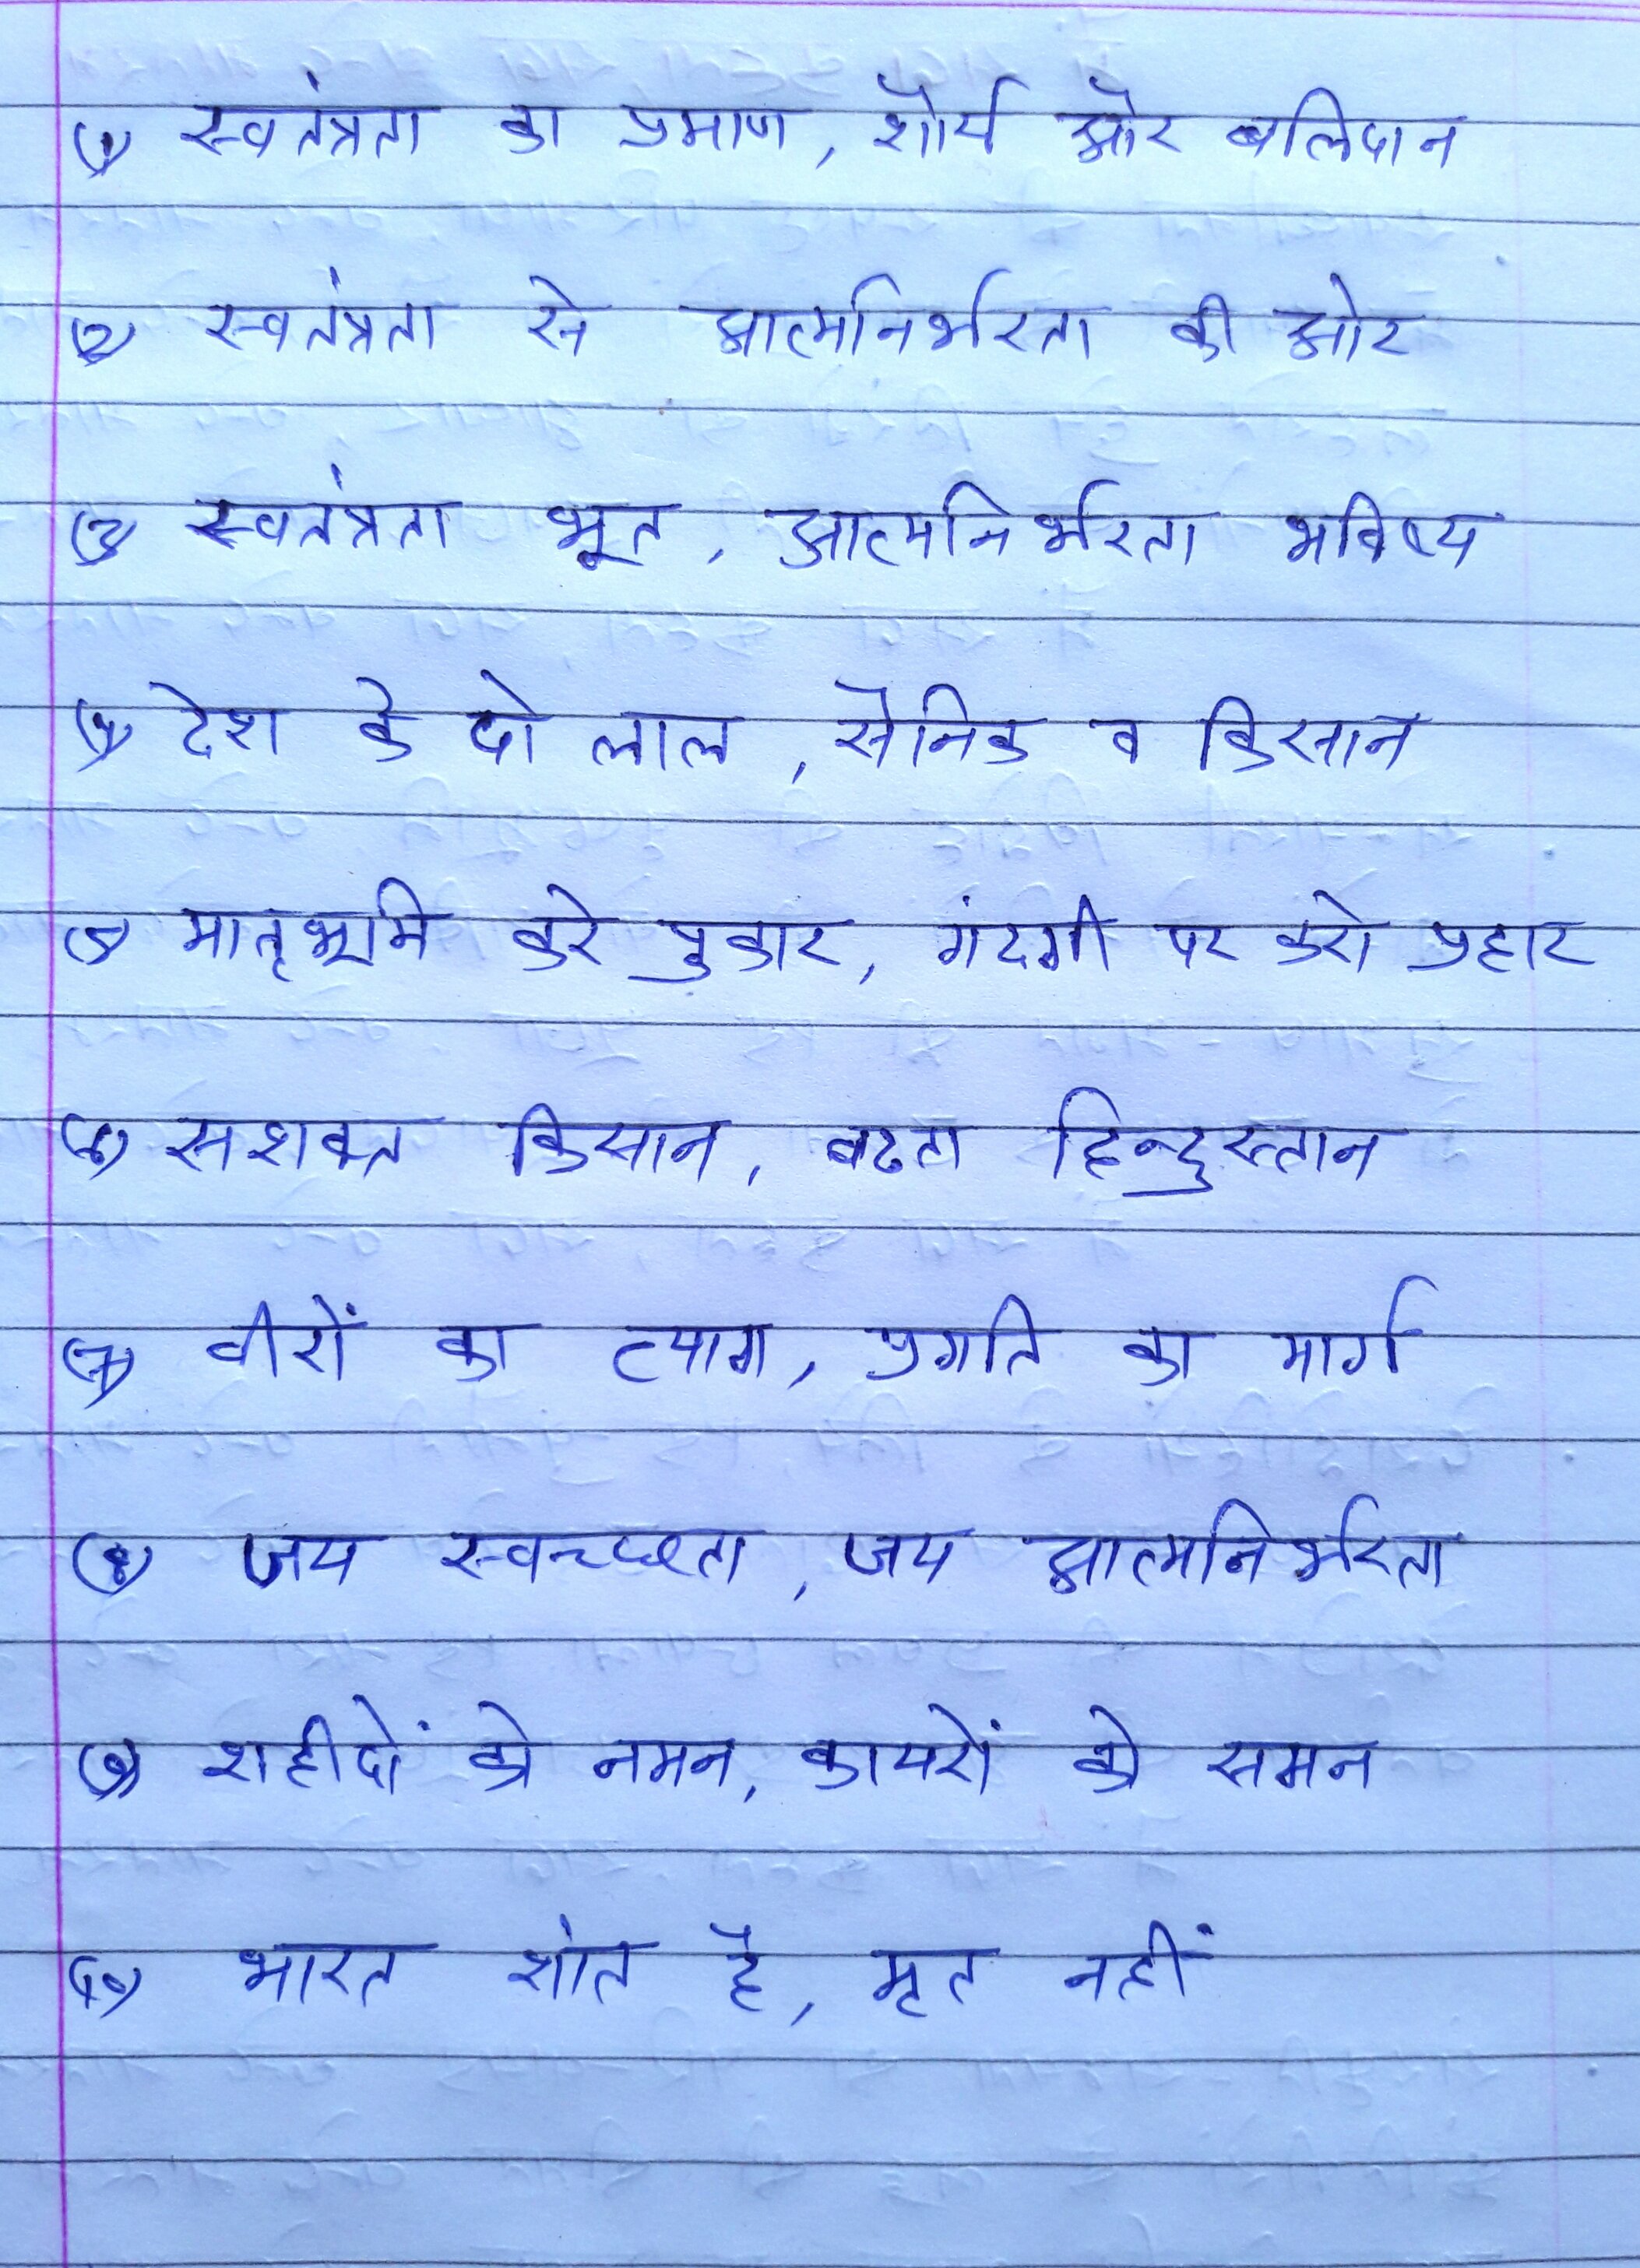 (1) स्वतंत्रता का प्रमाण, शौर्य और बलिदान
(2) स्वतंत्रता से आत्मनिर्भरता की ओर
(3) स्वतंत्रता भूत, आत्मनिर्भरता भविष्य
(4) देश के दो लाल, सैनिक व किसान
(5) मातृभूमि करे पुकार, गंदगी पर करो प्रहार
(6) सशक्त किसान, बढता हिन्दुस्तान
(7) वीरों का त्याग, प्रगति का मार्ग
(8) जय स्वच्छता, जय आत्मनिर्भरता
(9) शहीदों को नमन, कायरों को समन
(10) भारत शांत है, मृत नहीं